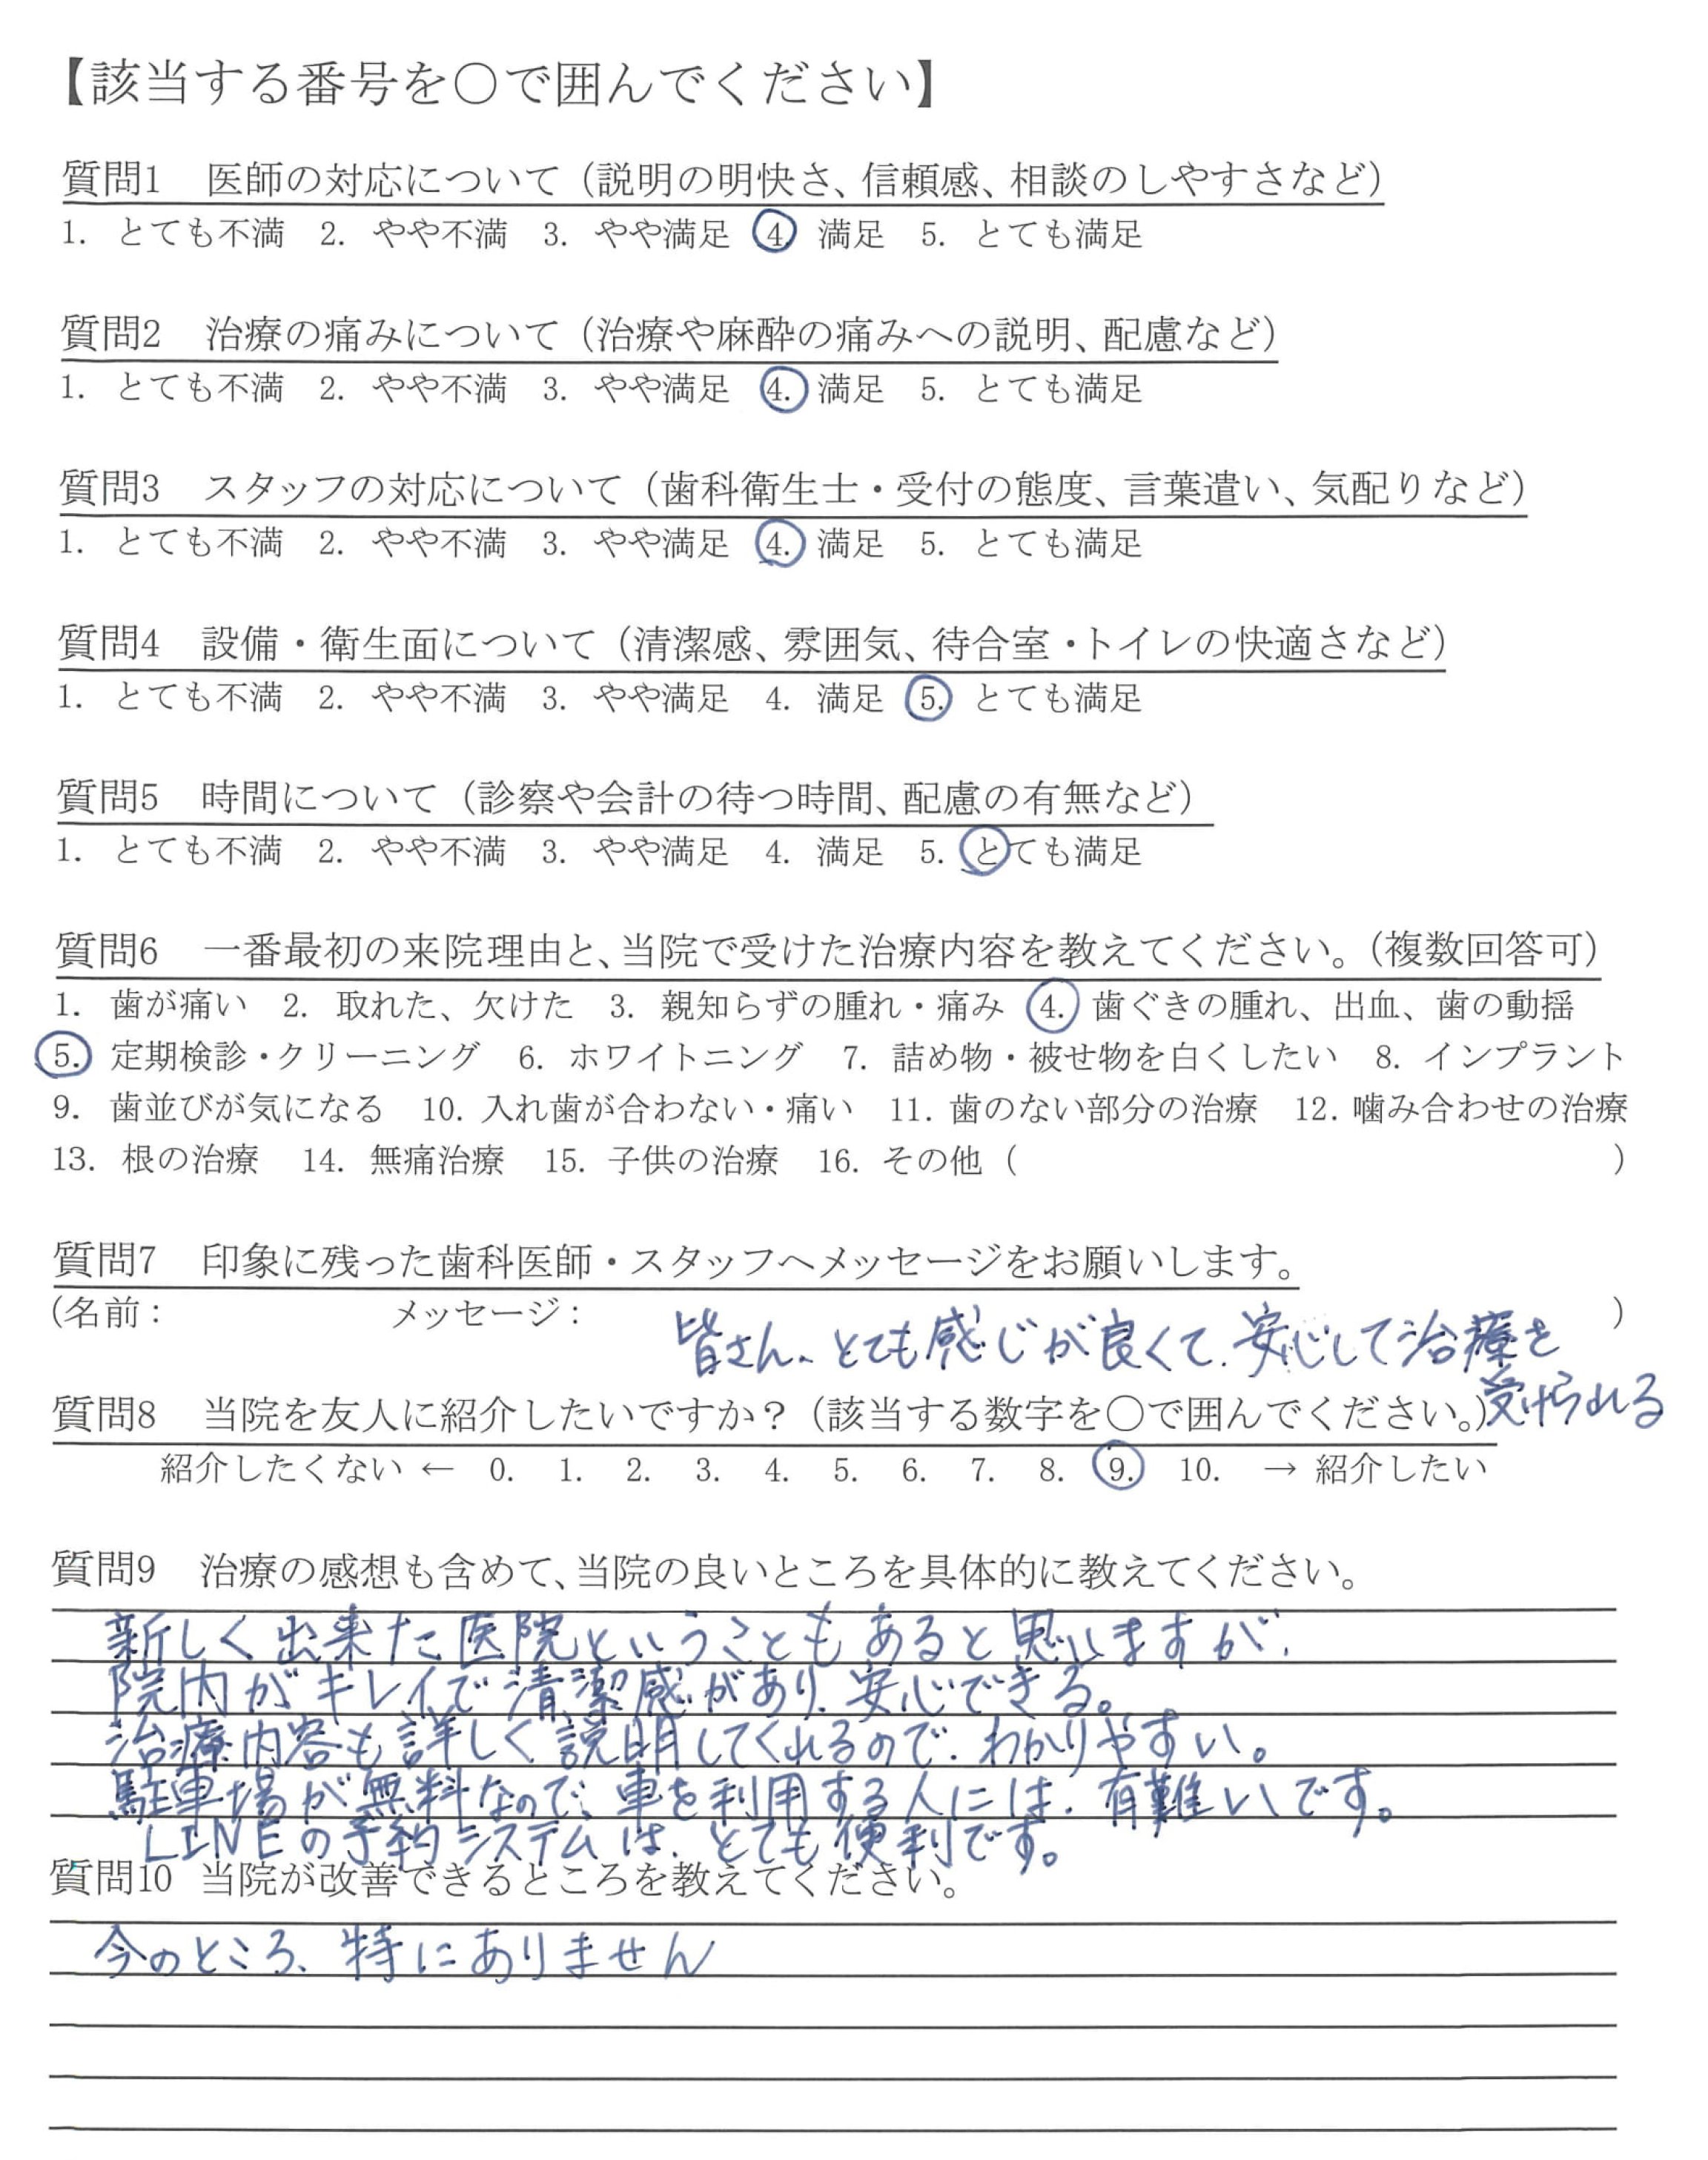 【該当する番号を○で囲んでください】
質問1　医師の対応について（説明の明快さ、信頼感、相談のしやすさなど）
1. とても不満　2. やや不満　3. やや満足　4. 満足　5. とても満足
質問2　治療の痛みについて（治療や麻酔の痛みへの説明、配慮など）
1. とても不満　2. やや不満　3. やや満足　4. 満足　5. とても満足
質問3　スタッフの対応について（歯科衛生士・受付の態度、言葉遣い、気配りなど）
1. とても不満　2. やや不満　3. やや満足　4. 満足　5. とても満足
質問4　設備・衛生面について（清潔感、雰囲気、待合室・トイレの快適さなど）
1. とても不満　2. やや不満　3. やや満足　4. 満足　5. とても満足
質問5　時間について（診察や会計の待つ時間、配慮の有無など）
1. とても不満　2. やや不満　3. やや満足　4. 満足　5. とても満足
質問6　一番最初の来院理由と、当院で受けた治療内容を教えてください。（複数回答可）
1. 歯が痛い　2. 取れた、欠けた　3. 親知らずの腫れ・痛み　4. 歯ぐきの腫れ、出血、歯の動揺
5. 定期検診・クリーニング　6. ホワイトニング　7. 詰め物・被せ物を白くしたい　8. インプラント
9. 歯並びが気になる　10. 入れ歯が合わない・痛い　11. 歯のない部分の治療　12. 噛み合わせの治療
13. 根の治療　14. 無痛治療　15. 子供の治療　16. その他（　）
質問7　印象に残った歯科医師・スタッフへメッセージをお願いします。
(名前：　メッセージ：　)
皆さん、とても感じが良くて、安心して治療を
受けられる
質問8　当院を友人に紹介したいですか？（該当する数字を○で囲んでください。）
紹介したくない ← 0. 1. 2. 3. 4. 5. 6. 7. 8. 9. 10. → 紹介したい
質問9　治療の感想も含めて、当院の良いところを具体的に教えてください。
新しく出来た医院ということもあると思いますが、
院内がキレイで清潔感があり、安心できる。
治療内容も詳しく説明してくれるので、わかりやすい。
駐車場が無料なので、車を利用する人には、有難いです。
LINEの予約システムは、とても便利です。
質問10　当院が改善できるところを教えてください。
今のところ、特にありません